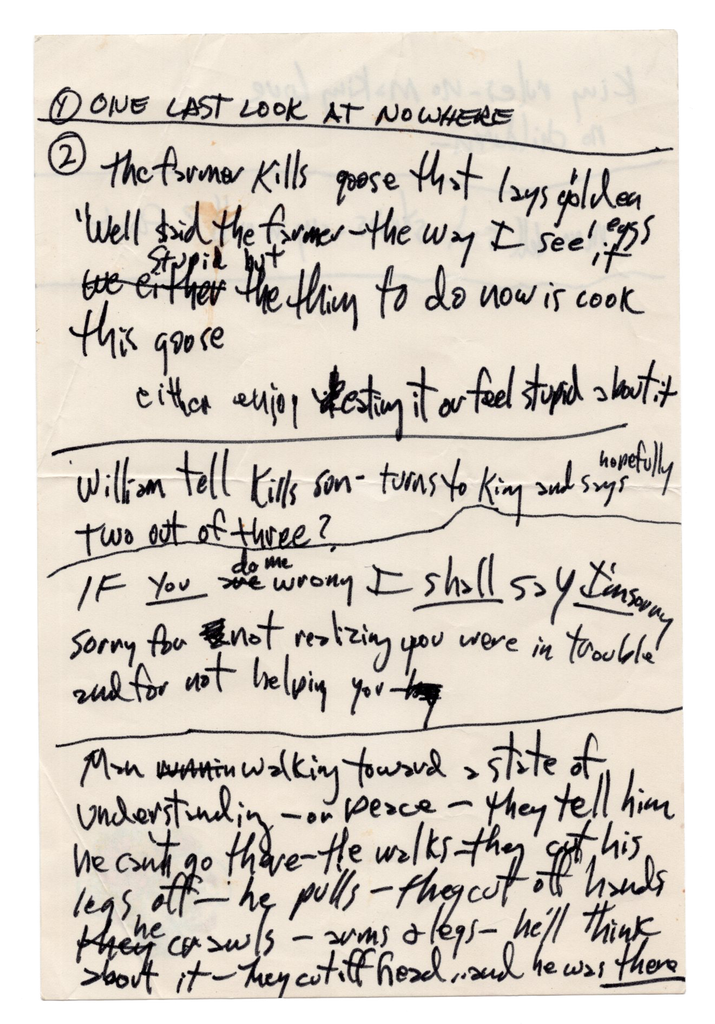 ① ONE LAST LOOK AT NOWHERE
② The farmer kills goose that lays golden eggs
'Well said the farmer - the way I see it
stupid but
we either the thing to do now is cook
this goose
either enjoy eating it or feel stupid about it
William tell kills son - turns to King and says hopefully
two out of three?
IF You are do me wrong I shall say I'm sorry
sorry for not realizing you were in trouble
and for not helping you -
Man walking toward a state of
understanding - or peace - they tell him
he can't go there - He walks - they cut his
legs off - he pulls - they cut off hands
they he crawls - arms & legs - he'll think
about it - they cut off head .. and he was there